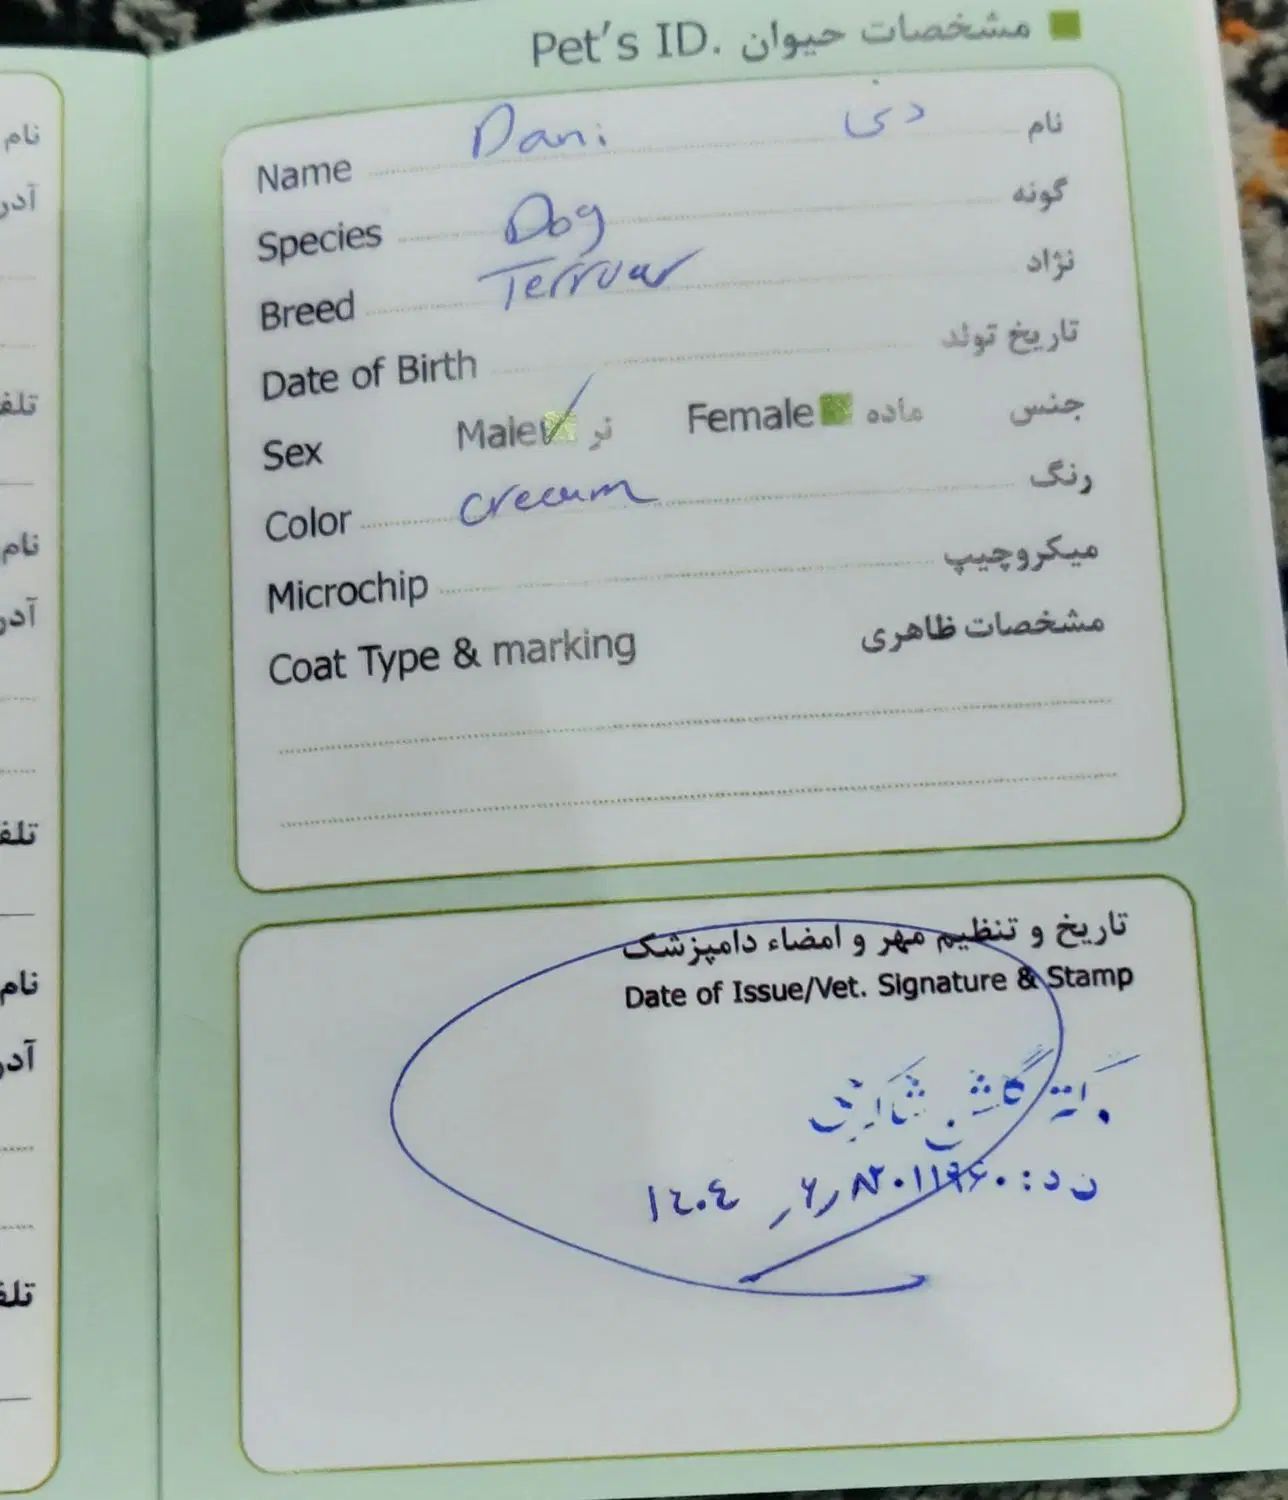 Pet's ID. مشخصات حیوان
Name Dani دنی نام
Species Dog گونه
Breed Terruer نژاد
Date of Birth تاریخ تولد
Sex Male نر Female ماده جنس
Color cream رنگ
Microchip میکروچیپ
Coat Type & marking مشخصات ظاهری
تاریخ و تنظیم مهر و امضاء دامپزشک
Date of Issue/Vet. Signature & Stamp
نام
آدر
تلف
نام
آدر
تلف
نام
آدر
تلف